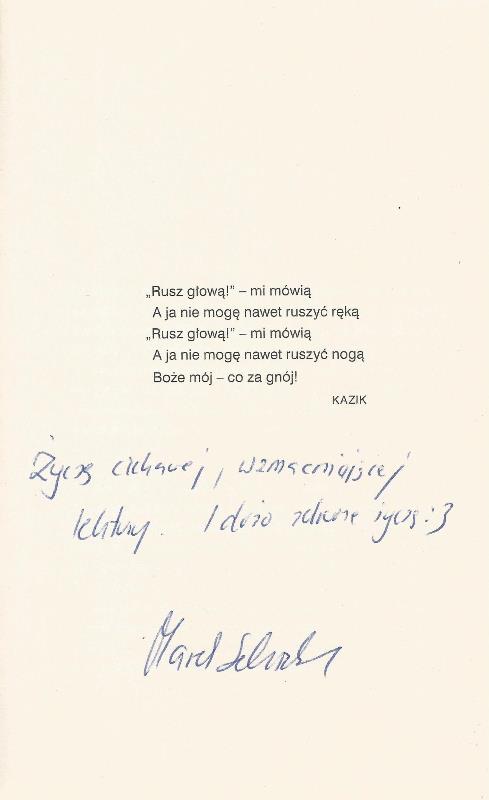 „Rusz głową!” – mi mówią
A ja nie mogę nawet ruszyć ręką
„Rusz głową!” – mi mówią
A ja nie mogę nawet ruszyć nogą
Boże mój – co za gnój!
KAZIK
Życzę ciekawej, wzmacniającej
lektury. I dużo zdrowia życzę :)
Marek